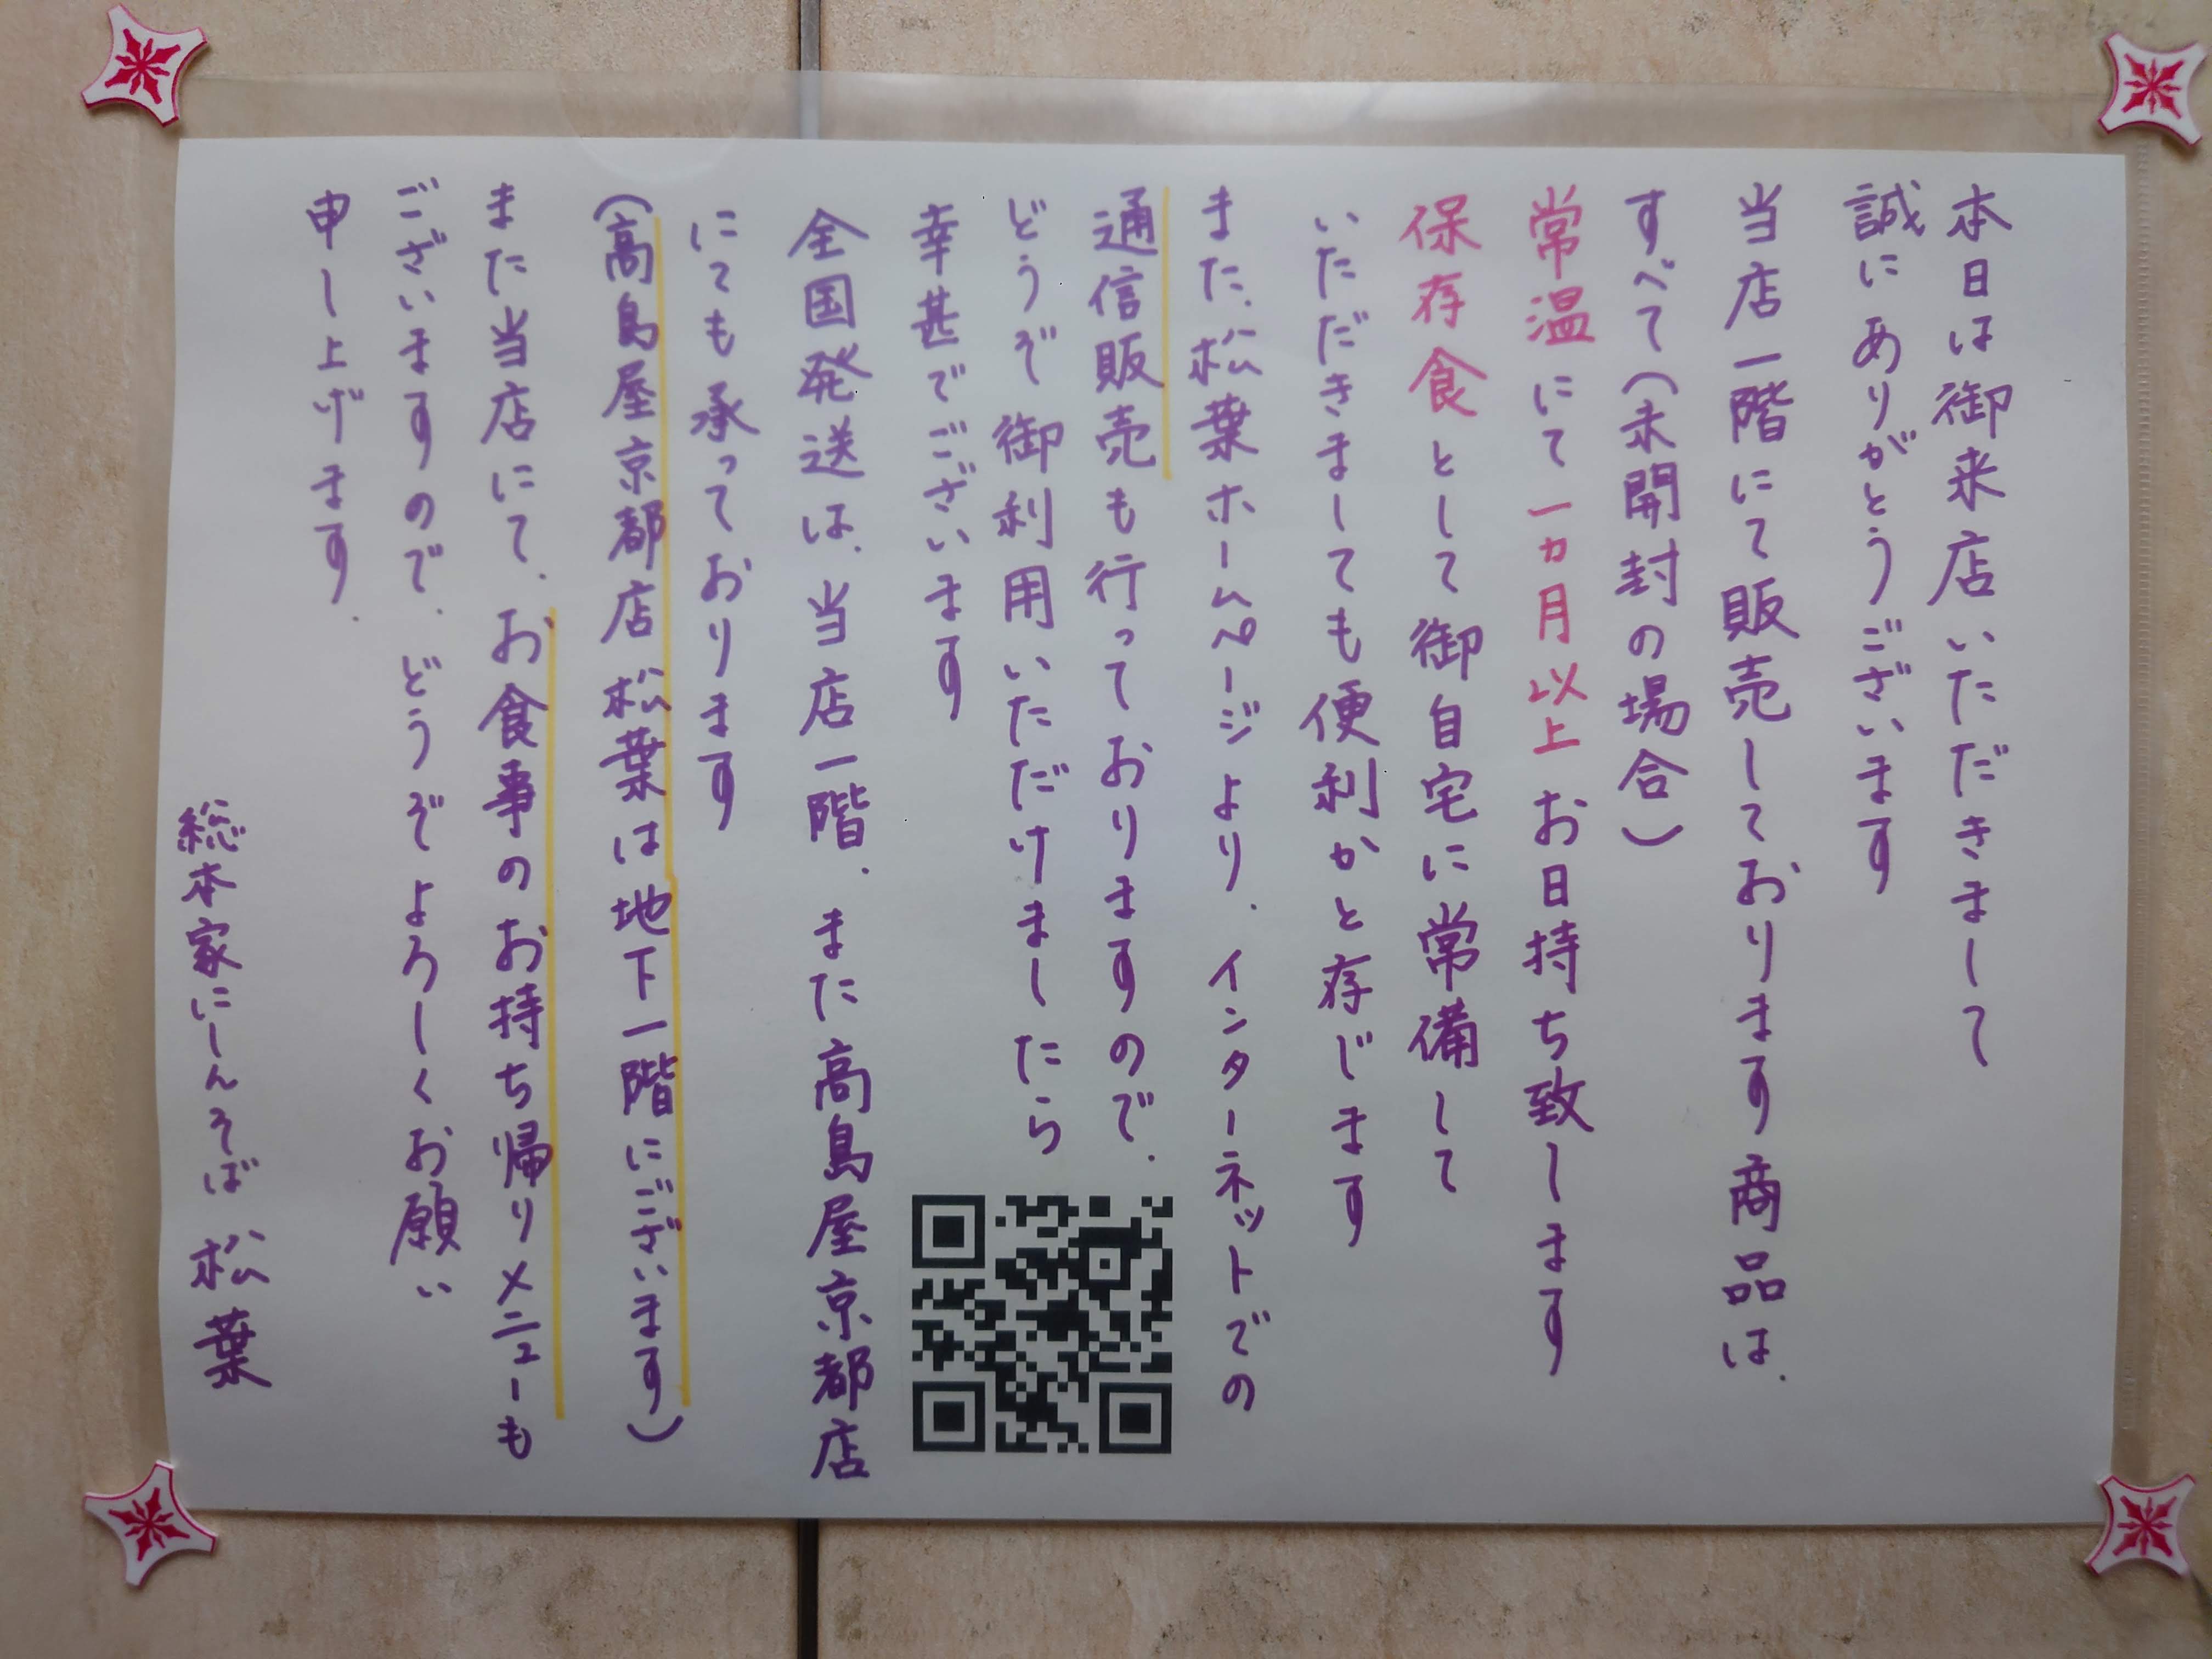 本日は御来店いただきまして
誠にありがとうございます
当店一階にて販売しております商品は、
すべて(未開封の場合)
常温にて一カ月以上お日持ち致します
保存食として御自宅に常備して
いただきましても便利かと存じます
また、松葉ホームページより、インターネットでの
通信販売も行っておりますので、
どうぞ御利用いただけましたら
幸甚でございます
全国発送は、当店一階、また高島屋京都店
にても承っております
(高島屋京都店松葉は地下一階にございます)
また当店にて、お食事のお持ち帰りメニューも
ございますので、どうぞよろしくお願い
申し上げます.
総本家にしんそば 松葉